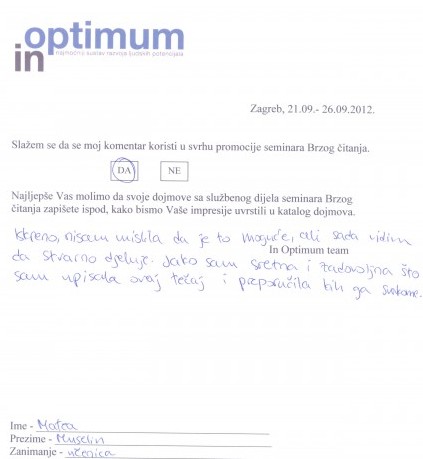 optimum
in
najmoćniji sustav razvoja ljudskih potencijala
Zagreb, 21.09.- 26.09.2012.
Slažem se da se moj komentar koristi u svrhu promocije seminara Brzog čitanja.
DA NE
Najljepše Vas molimo da svoje dojmove sa službenog dijela seminara Brzog
čitanja zapišete ispod, kako bismo Vaše impresije uvrstili u katalog dojmova.
Iskreno, nisam mislila da je to moguće, ali sada vidim
In Optimum team
da stvarno djeluje. Jako sam sretna i zadovoljna što
sam upisala ovaj tečaj i preporučila bih ga svakome.
Ime - Matea
Prezime - Muselin
Zanimanje - učenica